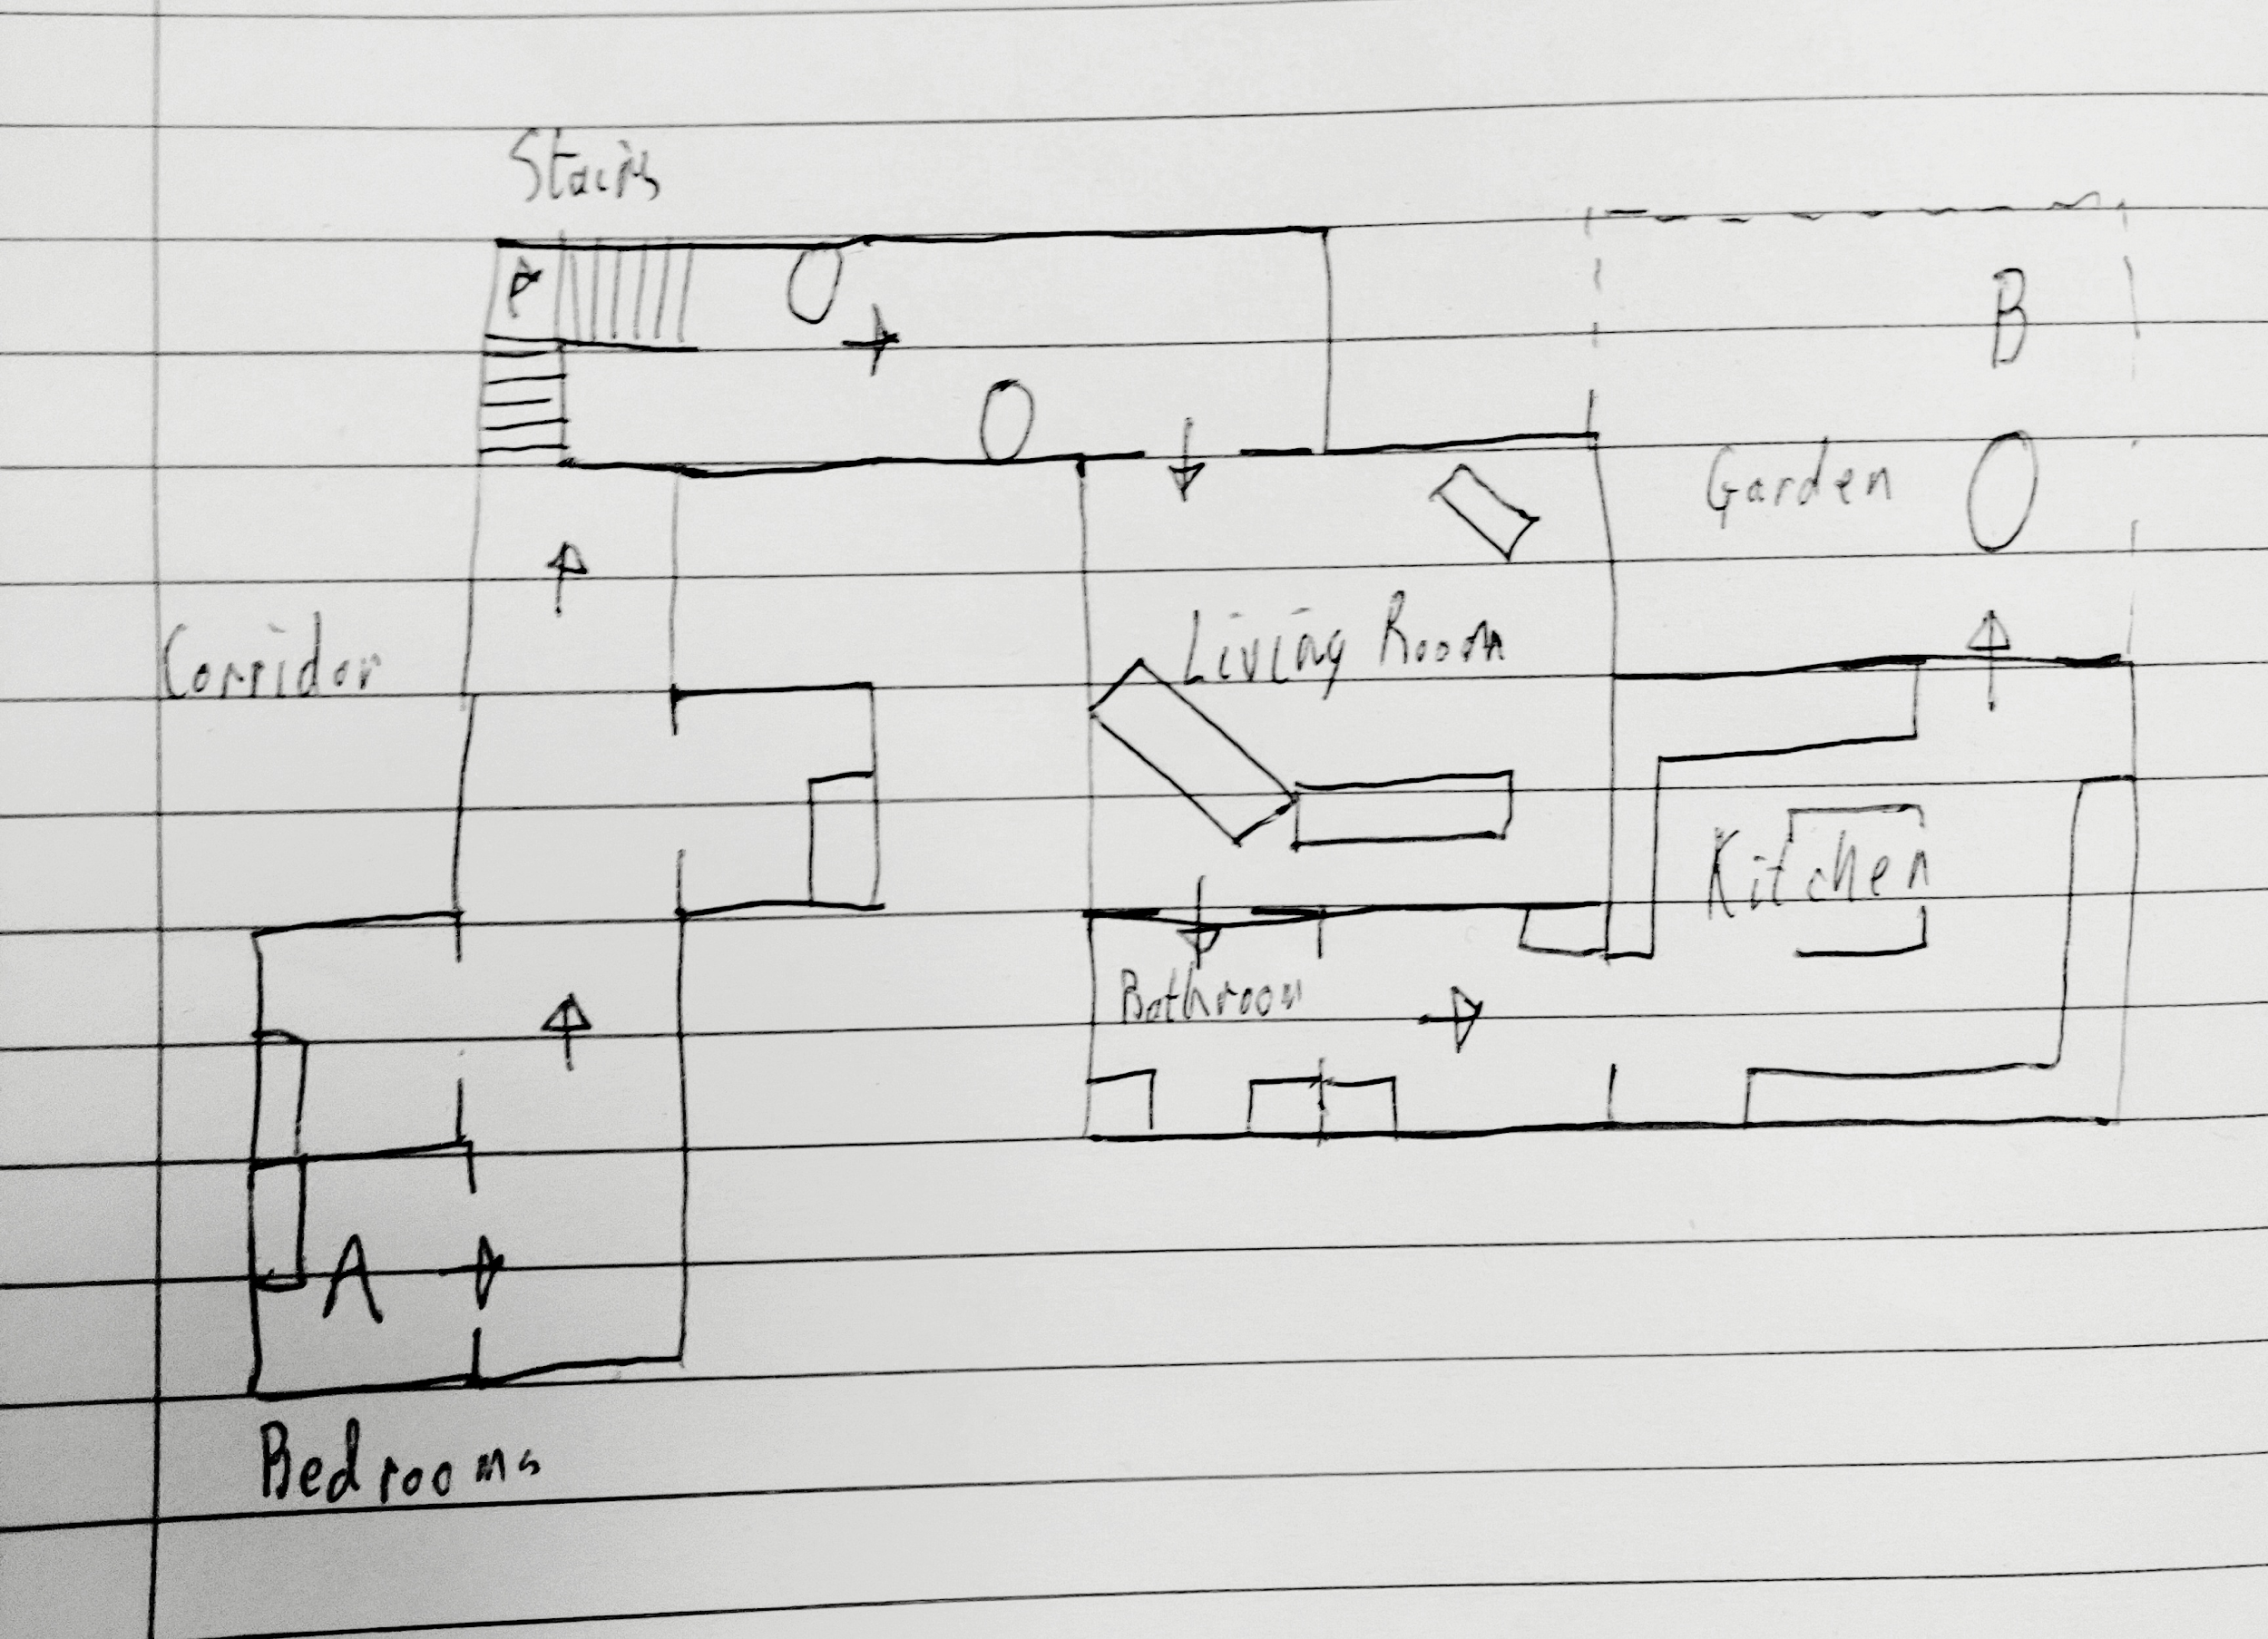 Stairs
B
Garden
Living Room
Corridor
Kitchen
Bathroom
A
Bedrooms